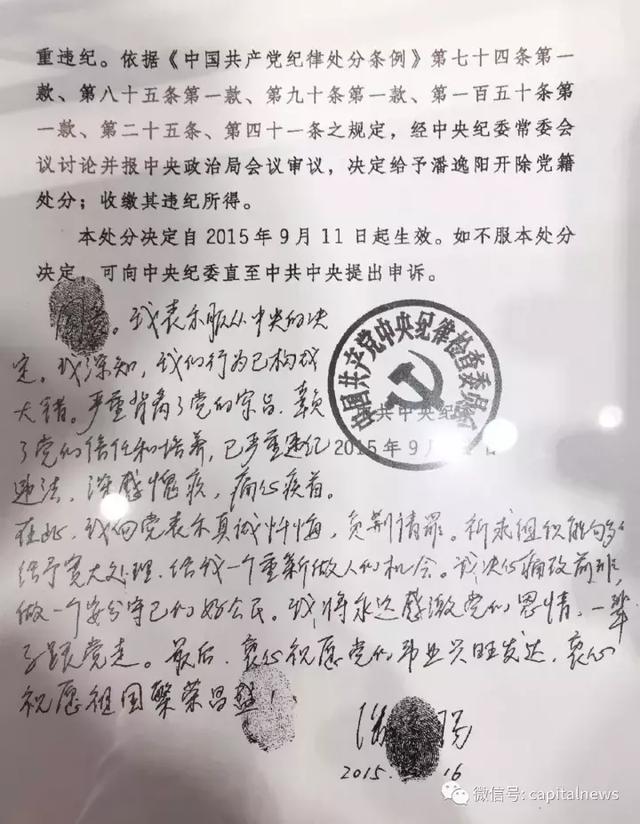 重违纪。依据《中国共产党纪律处分条例》第七十四条第一
款、第八十五条第一款、第九十条第一款、第一百五十条第
一款、第二十五条、第四十一条之规定，经中央纪委常委会
议讨论并报中央政治局会议审议，决定给予潘逸阳开除党籍
处分；收缴其违纪所得。
本处分决定自2015年9月11日起生效。如不服本处分
决定，可向中央纪委直至中共中央提出申诉。
中国共产党中央纪律检查委员会
共中央纪
2015年9月
同意。我表示服从中央的决
定。我深知，我的行为已构成
大错。严重背离了党的宗旨、辜负
了党的信任和培养，已严重违纪
违法，深感愧疚，痛心疾首。
在此，我向党表示真诚忏悔，负荆请罪。祈求组织能够
给予宽大处理，给我一个重新做人的机会。我决心痛改前非，
做一个安分守己的好公民。我将永远感激党的恩情，一辈
子跟党走。最后，衷心祝愿党的事业兴旺发达，衷心
祝愿祖国繁荣昌盛！
潘 阳
2015. 16
微信号: capitalnews